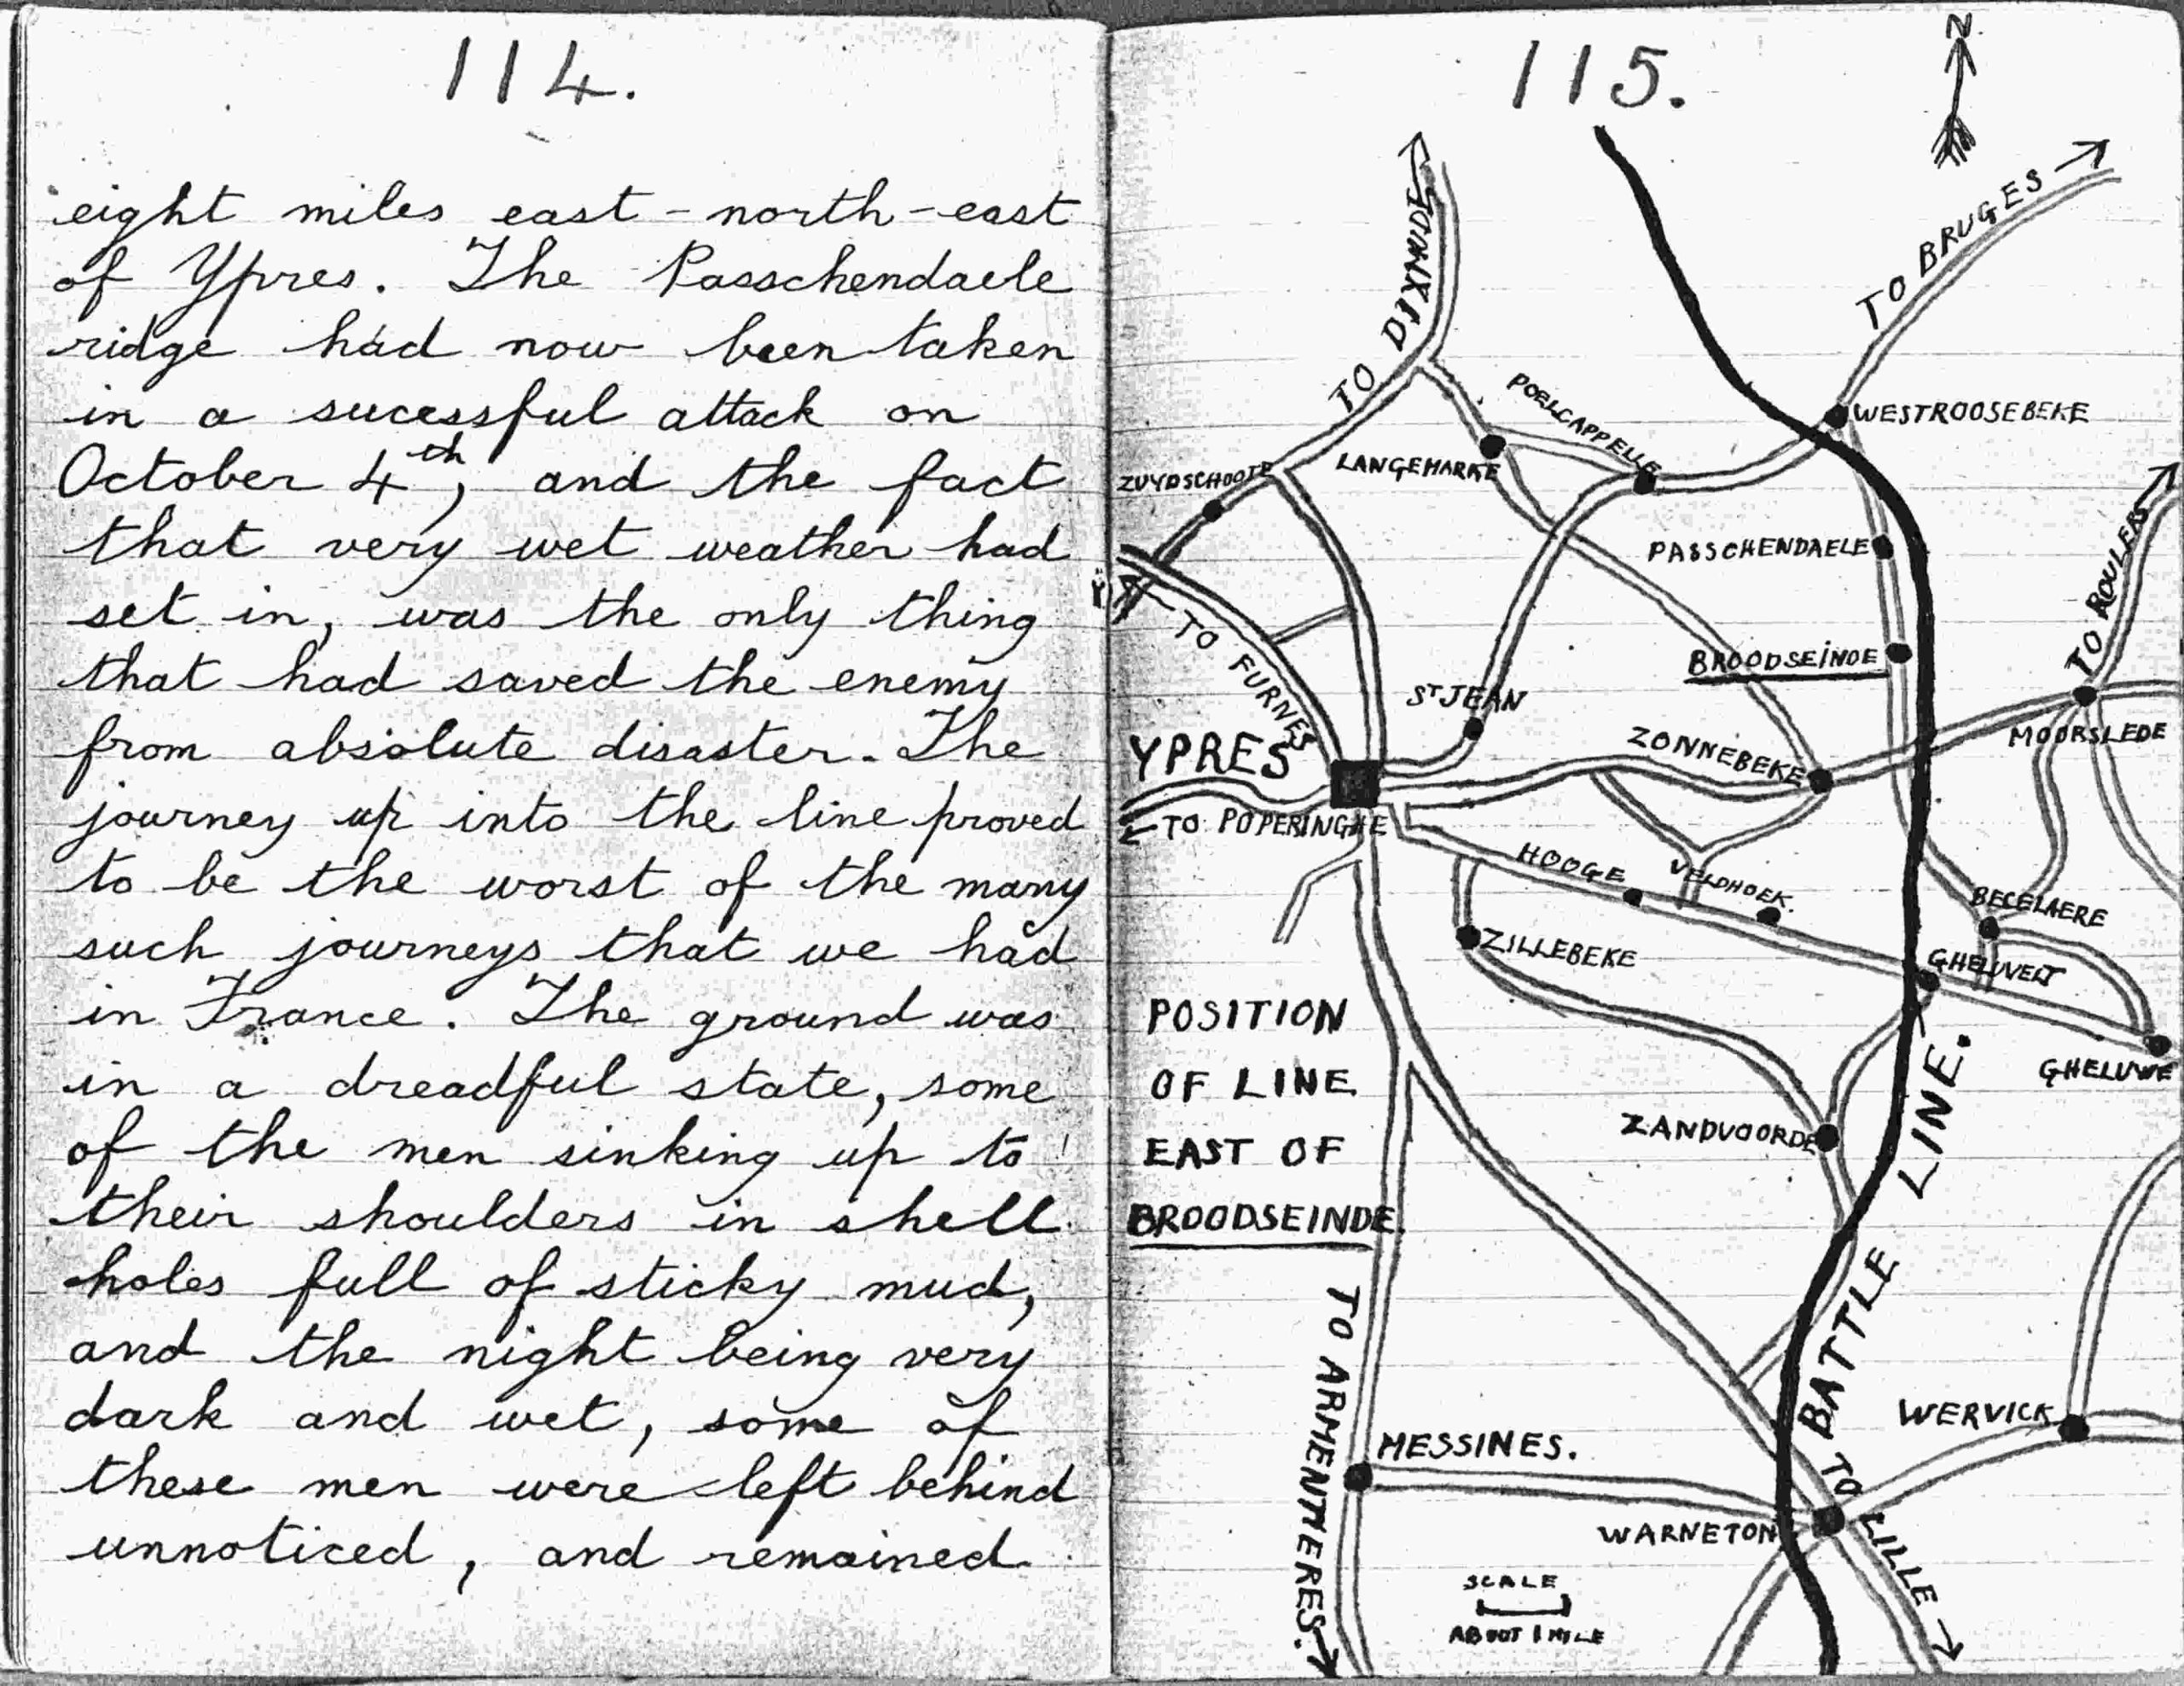 114.
eight miles east-north-east
of Ypres. The Passchendaele
ridge had now been taken
in a sucessful attack on
October 4th, and the fact
that very wet weather had
set in, was the only thing
that had saved the enemy
from absolute disaster. The
journey up into the line proved
to be the worst of the many
such journeys that we had
in France. The ground was
in a dreadful state, some
of the men sinking up to
their shoulders in shell
holes full of sticky mud,
and the night being very
dark and wet, some of
these men were left behind
unnoticed, and remained
115.
N.
TO DIXMUDE
TO BRUGES
POELCAPPELLE
WESTROOSEBEKE
LANGEMARKE
ZUYDSCHOOTE
PASSCHENDAELE
TO ROULERS
TO FURNES
BROODSEINDE
ST JEAN
ZONNEBEKE
MOORSLEDE
YPRES
TO POPERINGHE
HOOGE
VELDHOEK.
BECELAERE
ZILLEBEKE
GHELUVELT
GHELUWE
POSITION
OF LINE
EAST OF
BROODSEINDE.
ZANDVOORDE
BATTLE LINE.
TO ARMENTIERES.
MESSINES.
WERVICK
WARNETON
TO LILLE
SCALE
ABOUT 1 MILE